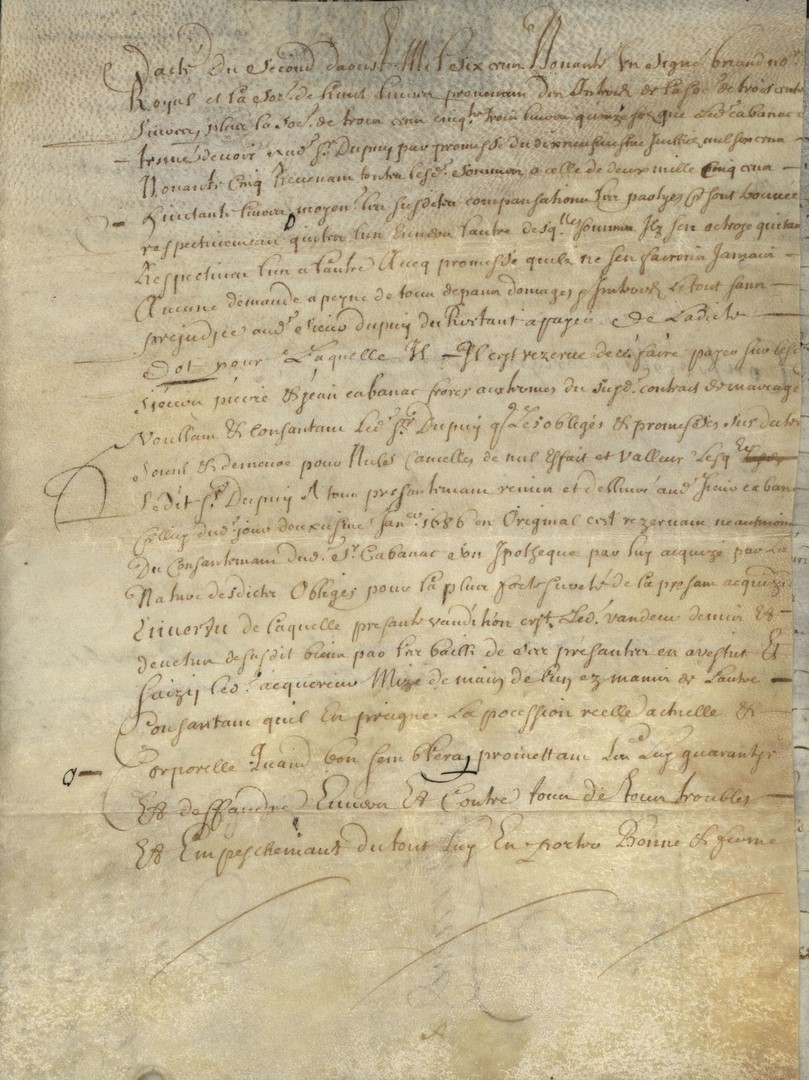 Dacte du second daoust Mil six cens Nonante un signé briand no.re
Royal et la so.e de huict livres provenant des Intrestz de la so.e de trois cents
livres, plus la so.e de trois cens cinq.te trois livres quinze solz que led. cabanac
tenu devoir aud. s.r Dupuy par promesse du dixneufiesme juillet mil six cens
Nonante Cinq Revenant toutes lesd. sommes a celle de deux mille Cinq cens
huictante livres, moyen les susdites compansations les partyes se sont tenues
respectivement quites l'un envers l'autre desq.lles sommes Ilz sen octroye quitan
Respective lun a l'autre Avecq promesse quilz ne sen fairont Jamais
Aucune demande a peyne de tous depans domages & Intrestz Le tout sans
prejudice aud. sieur dupuy du Restant a payer de Ladicte
Dot pour Laquelle Il s'est rezerve de ce faire payer sur lesd.
sieurs pierre & jean cabanac freres aux termes du susd. contract de mariage
Voullant & Consantant Led. s.r Dupuy q. Les obliges & promesses sus dates
soient & demeure pour Nulles Cancelles de nul Effait et Valleur Lesq.lles
Ledit s.r Dupuy A tout presantemant remis et dellivré aud. sieur cabanac
Celluy dud. jour douxiesme jan.er 1686 en Original cest rezervant neantmoins
Du Consantemant dud. s.r Cabanac son Ipotheque par luy acquize par la
Nature desdictes Obliges pour La plus forte sureté de la presant acquizi
En vertu de laquelle presante vandithon cest Led. vandeur demis &
devetu du susdit bien par les bailh de ses presantes en a vestut &
saizy led. acquereur Mize de main de luy ez mains de Lautre
Consantant quil En preigne La pocession reelle actuelle &
Corporelle Quand bon semblera promettant Lui Luy guarantir
& deffandre Envers & Contre tous de tous troubles
& Empeschemants du tout Luy En porter Bonne & ferme